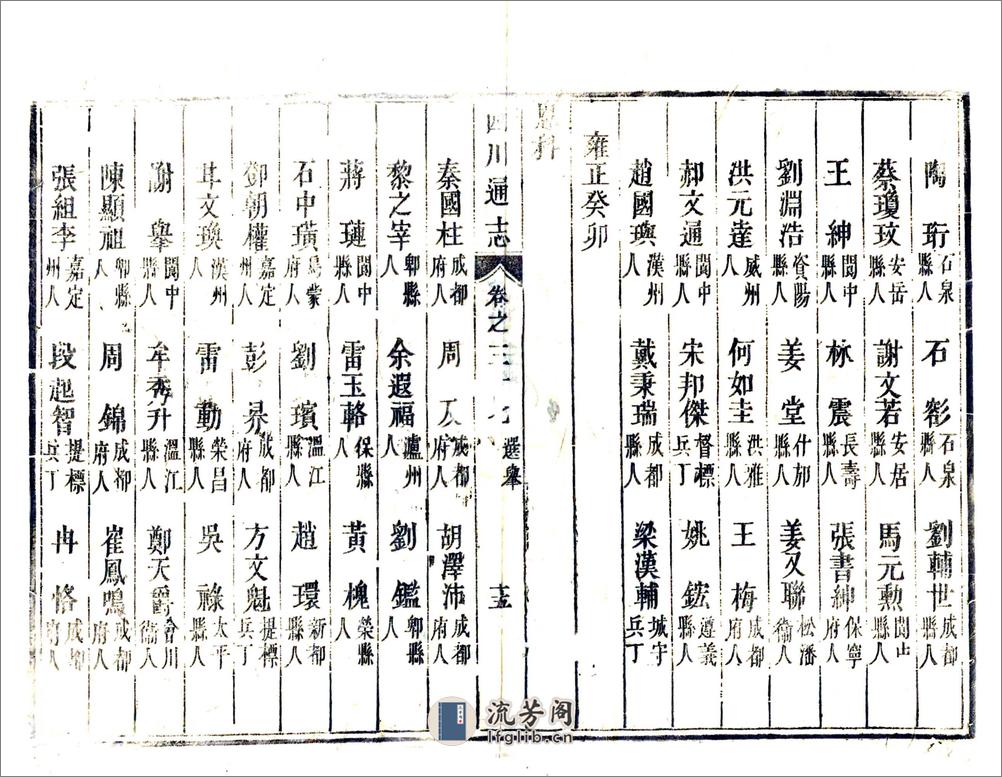 陶珩石泉縣人 石彰石泉縣人 劉輔世成都縣人
蔡瓊玟安岳縣人 謝文若安居縣人 馬元勲閬中縣人
王紳閬中縣人 林震長壽縣人 張書紳保寧府人
劉淵浩資陽縣人 姜堂什邡縣人 姜又聯松潘衛人
洪元達威州人 何如圭洪雅縣人 王梅成都府人
郝文通閬中縣人 宋邦傑督標兵丁 姚鋐遵義縣人
趙國璵漢州人 戴秉瑞成都縣人 梁漢輔城守兵丁
雍正癸卯
恩科
四川通志 卷之三十七 選舉 十五
秦國柱成都府人 周 成都府人 胡澤沛成都縣人
黎之宰郫縣人 余遐福瀘州人 劉鑑郫縣人
蔣璉閬中縣人 雷玉輅保縣人 黃槐榮縣人
石中璜烏蒙府人 劉璸溫江縣人 趙環新都縣人
鄧朝權嘉定州人 彭昇成都府人 方文魁提標兵丁
文瑍漢州人 雷動榮昌縣人 吳祿太平縣人
謝舉閬中縣人 牟秀升溫江縣人 鄭天爵合川衛人
陳顯祖郫縣人 周錦成都府人 崔鳳鳴成都府人
張組李嘉定州人 段起智提標兵丁 冉恪成都府人
流芳阁
lfglib.cn